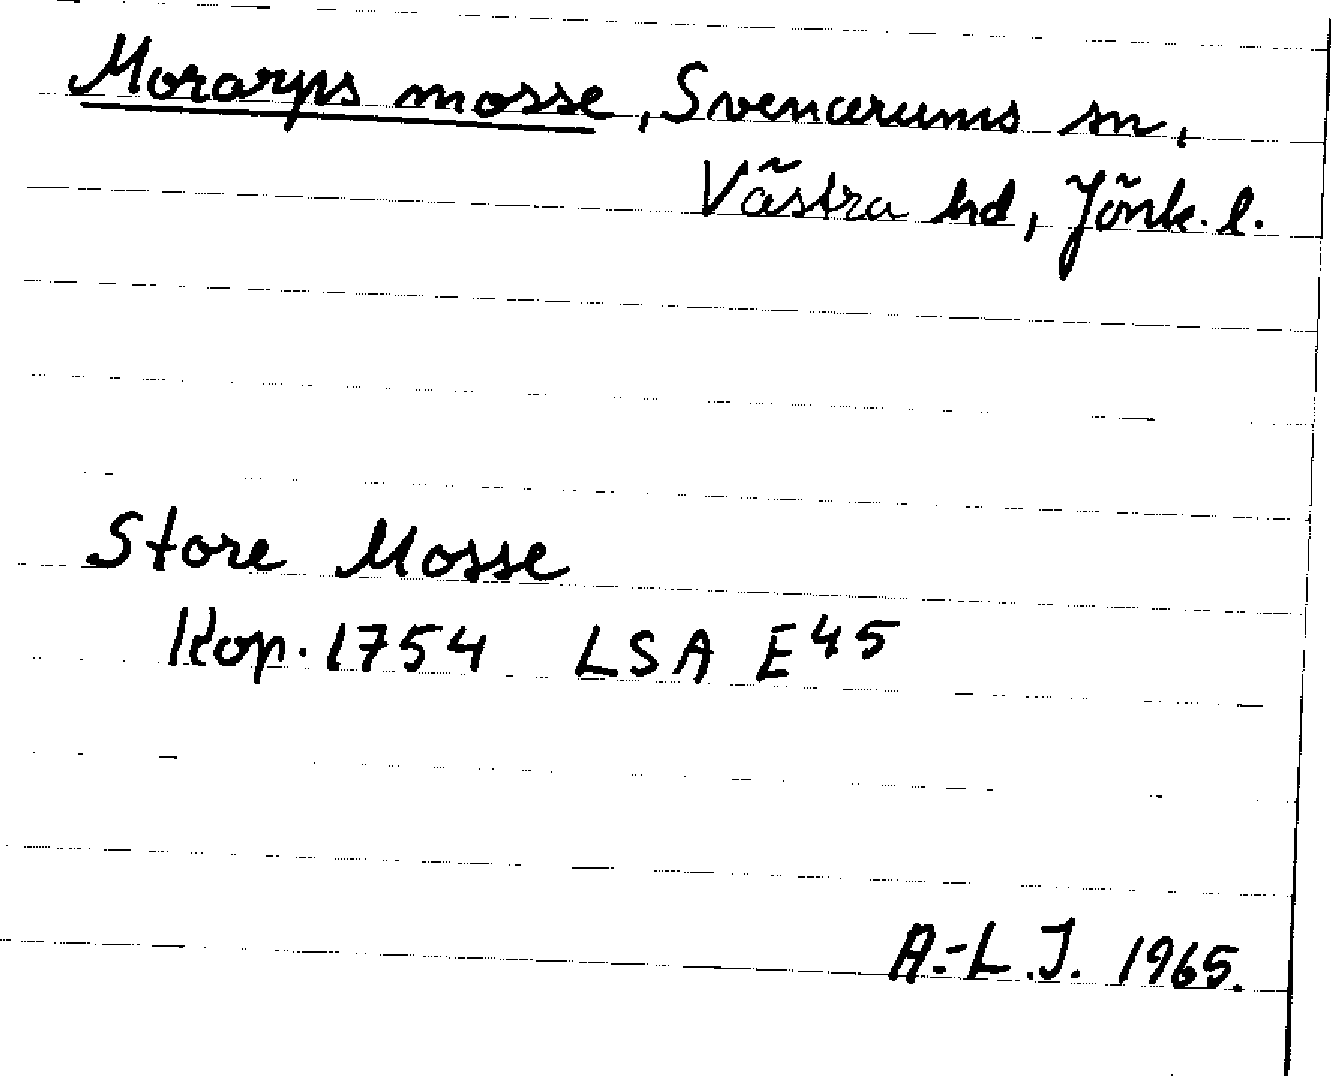 Morarps mosse, Svenarums sn,
Västra hd, Jönk. l.
Store Mosse
Kop. 1754 LSA E45
A.-L.J. 1965.